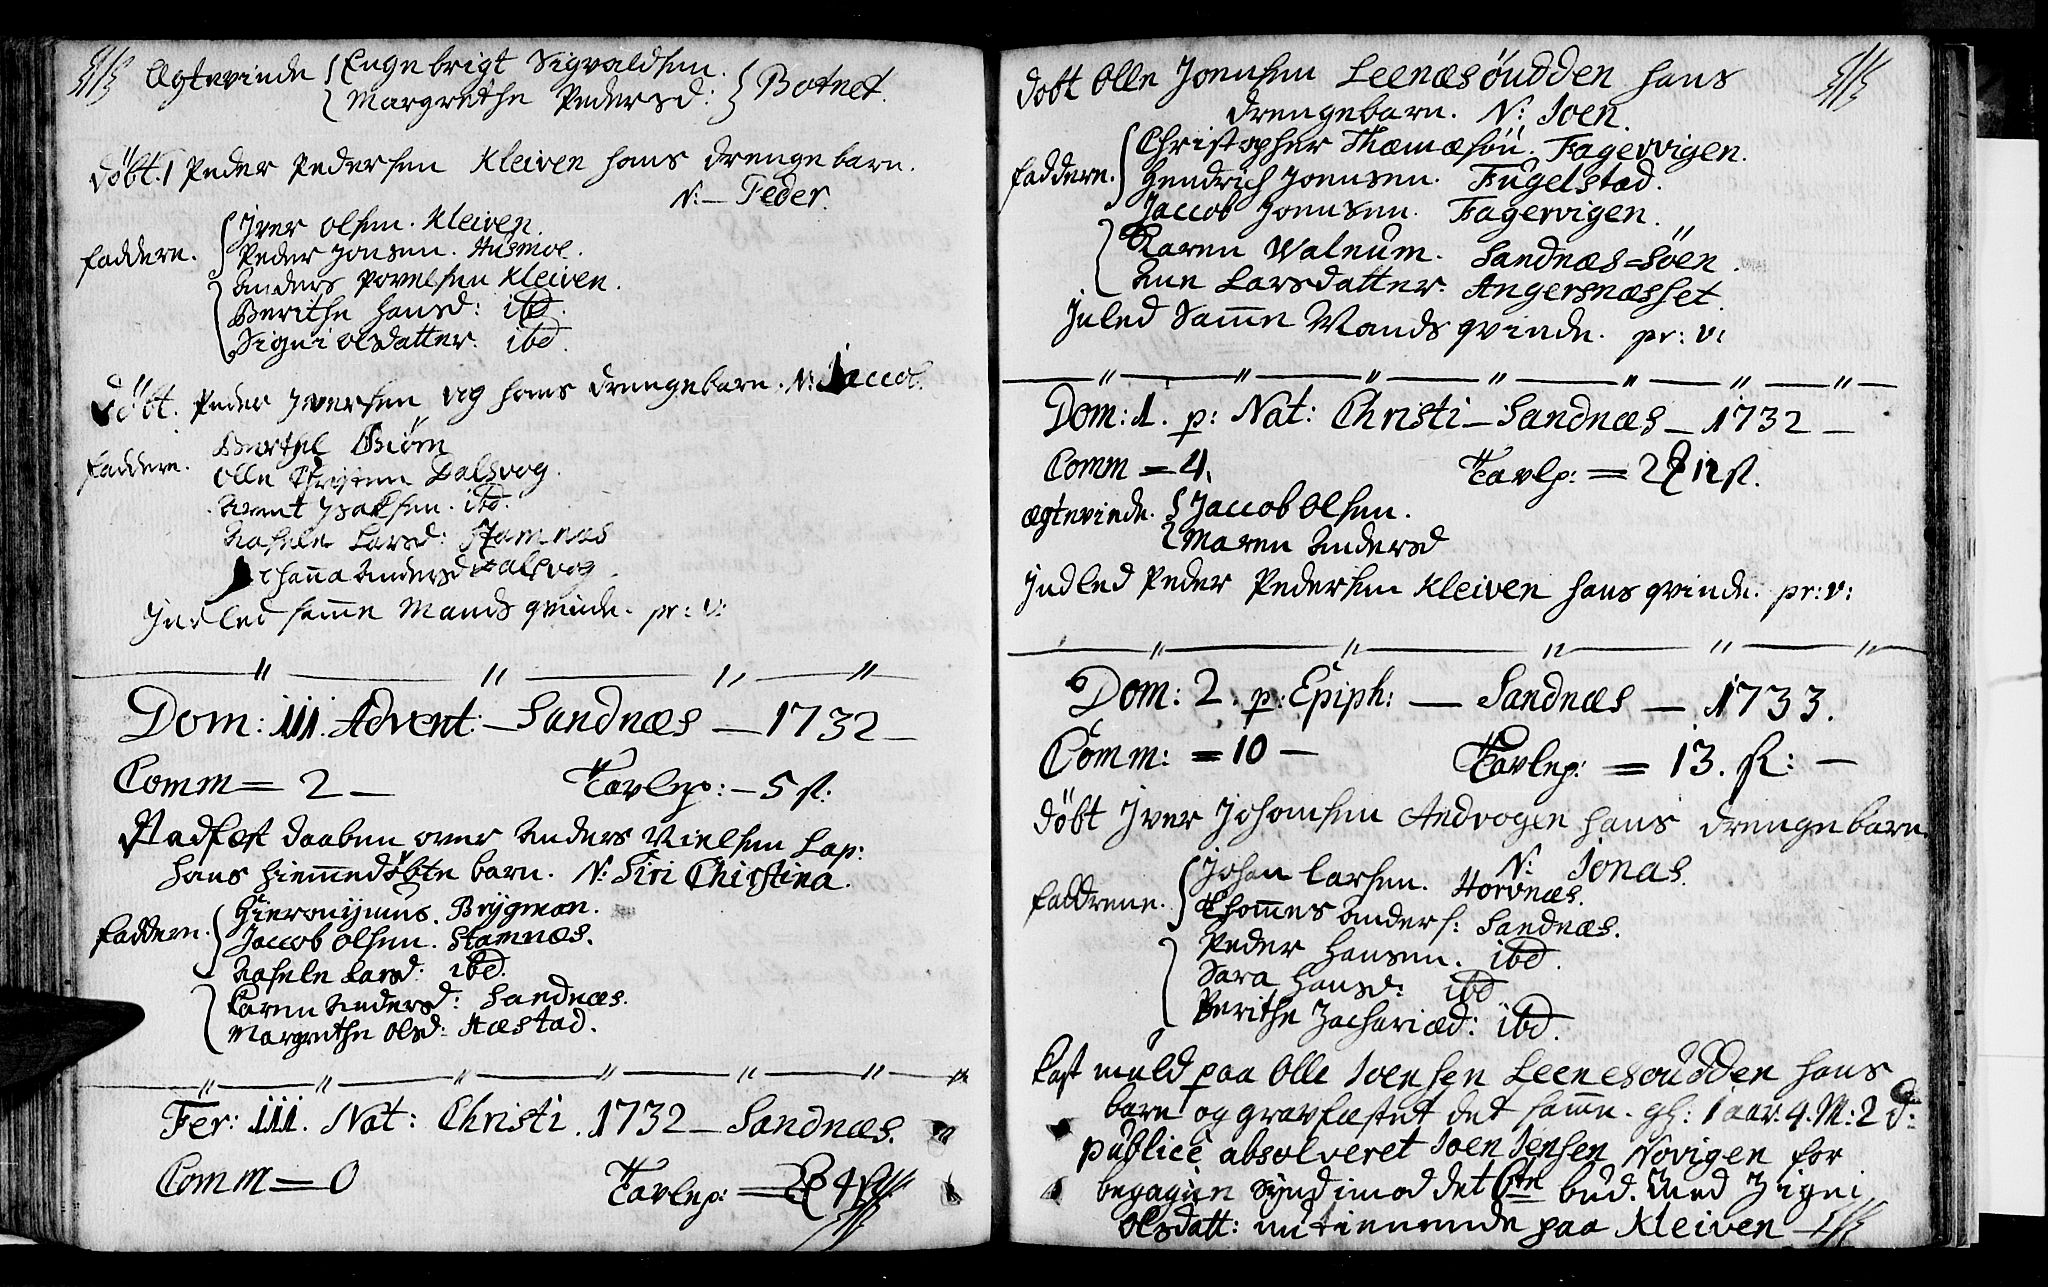 Ægtevinde { Engebrigt Sigvaldsen.
{ Margrethe Pedersd: } Botnet.
Döbt. Peder Pedersen Kleiven hans drengebarn.
N:— Peder.
faddere. { Iver Olsen. Kleiven.
Peder Jonsen. Husmoe.
Anders Povelsen Kleiven.
Berithe Hansd: ibd.
Signi Olsdatter. ibd.
Döbt. Peder Iversen Vig hans drengebarn. N: Jaccob.
Bertel Biörn
faddere. Olle Dalsvog.
Arent Isaksen. ibd.
Larsd: Stamnæs
Andersd Dalsvog.
Indled samme Mands qvinde. pr: v:
Dom: III. Advent: — Sandnæs — 1732 —
Comm = 2 — Tavlep: — 5 sk:
Stadfæst daaben over Anders Nielsen Lap:
hans hiemmedöbte barn. N: Siri Chirstina.
faddere. { Hieronymus. Brygman.
Jaccob Olsen. Stamnæs.
Larsd: ibd.
Karen Andersd: Sandnæs.
Margrethe Olsd: Hæstad.
Fer: III. Nat: Christi. 1732 — Sandnæs.
Comm = 0 Tavlep: =
döbt Olle Joensen Leenæsöudden hans
drengebarn. N: Joen.
faddere. { Christopher Thomæsön. Fagervigen.
Hendrich Joensen. Fugelstad.
Jaccob Joensen. Fagervigen.
Karen Walnum. Sandnæs=söen.
Ane Larsdatter. Angersnæsset.
Inled Samme Mands qvinde. pr: v:
Dom: 1. p: Nat: Christi — Sandnæs — 1732 —
Comm = 4. Tavlp: = 2 12 sk.
ægtevinde. { Jaccob Olsen.
{ Maren Andersd
Indled Peder Pedersen Kleiven hans qvinde. pr: v:
Dom: 2. p: Epiph: — Sandnæs — 1733.
Comm: = 10 — Tavlep: = 13. sk: —
döbt Iver Johansen Andvogen hans drengebarn
N: Jonas.
faddrene. { Johan Larsen. Horvnæs.
Thommes Anders: Sandnæs.
Peder Hansen. ibd.
Sara Hansd: ibd
Berithe Zachariæd: ibd.
Kast muld paa Olle Joensen Leenesoudden hans
barn og gravfæstet det samme. gl: 1 aar. 4. M: 2 d:
publicè absolveret Joen Jensen Novigen for
begagen Synd imod det 6te bud. Med Zigni
Olsdatt: nu tienende paa Kleiven —